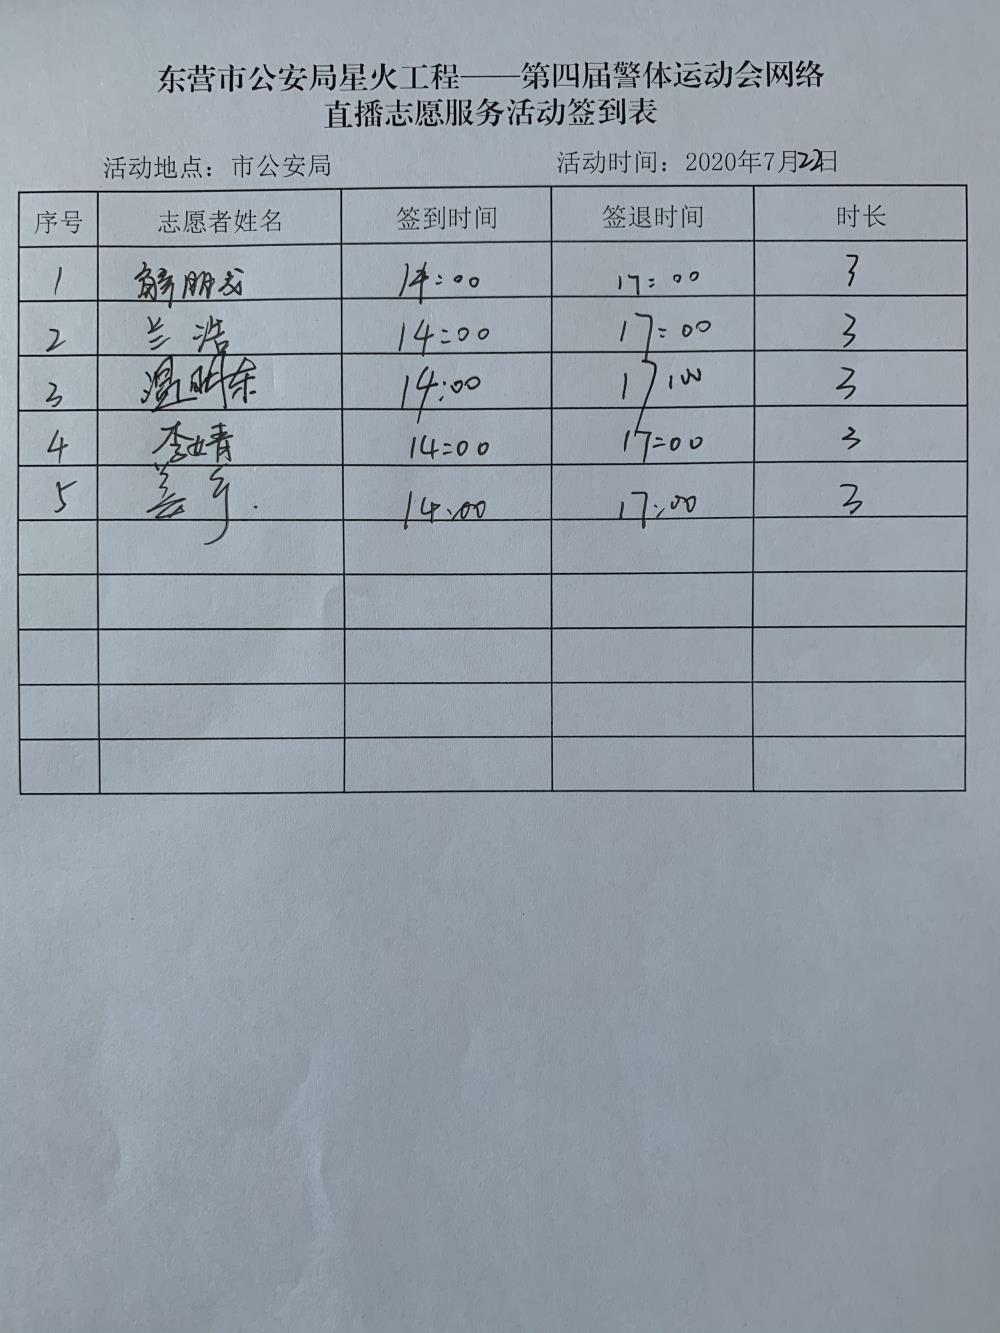 东营市公安局星火工程——第四届警体运动会网络
直播志愿服务活动签到表
活动地点：市公安局 活动时间：2020年7月22日
序号 志愿者姓名 签到时间 签退时间 时长
1 解朋成 14:00 17:00 3
2 兰浩 14:00 17:00 3
3 温明东 14:00 17:00 3
4 李婧 14:00 17:00 3
5 14:00 17:00 3